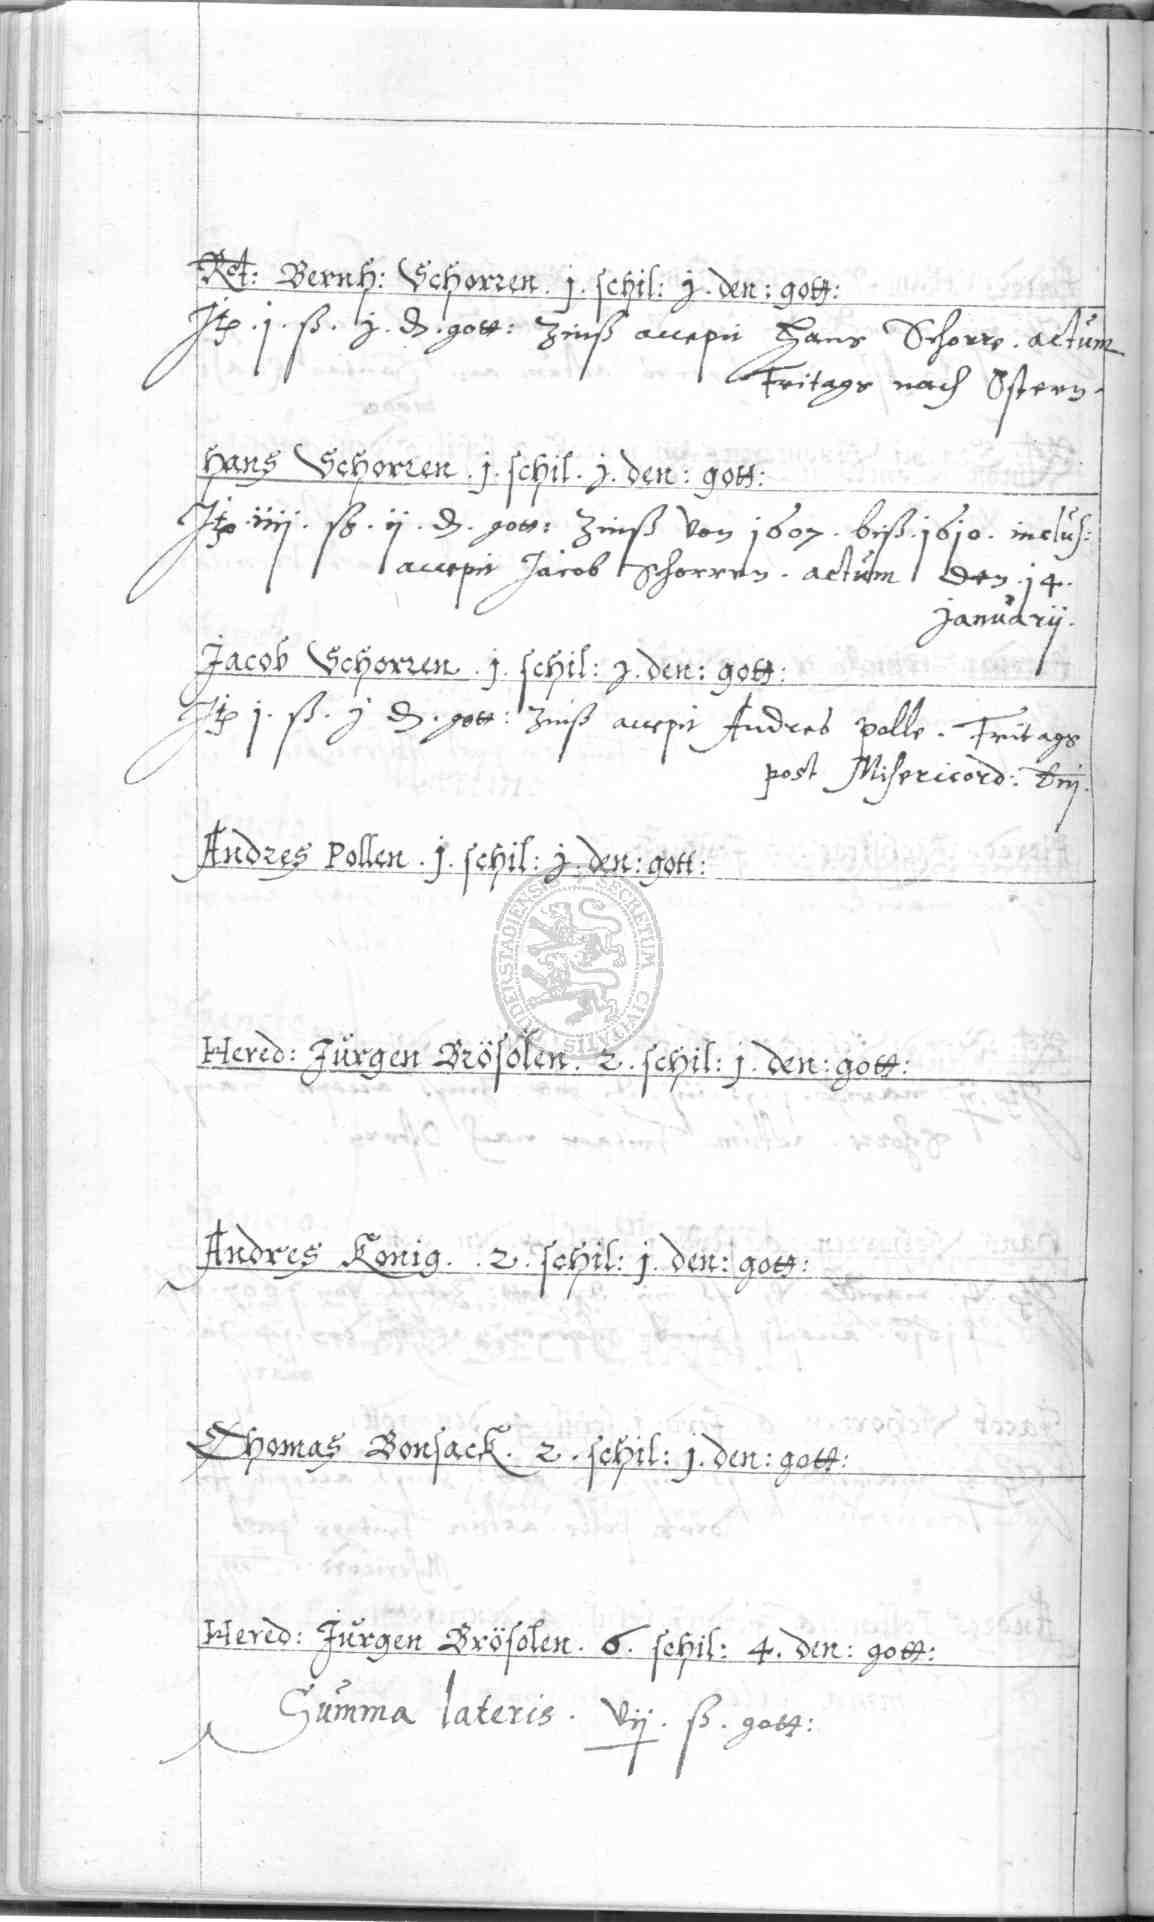 Rct: Bernh: Schorren. j. schil: j. den: gott:
Itp. j. ß. j. d. gott: Zinß accepit Hans Schorre. actum
Fritags nach Ostern.
Hans Schorren. j. schil. j. den: gott:
Itp. iiij. ß. ij. d. gott: Zinß von 1607. biß. 1610. inclus:
accepit Jacob Schorren. actum den. 14.
januarij.
Jacob Schorren. j. schil: j. den: gott:
Itp j. ß. j d. gott: Zinß accepit Andres polle. Fritags
post Misericord: Dnj.
Andres Pollen. j. schil: j. den: gott:
SECRETUM CIVITATIS DUDERSTADIENSIS
Hered: Jürgen Brösolen. 2. schil: j. den: gott:
Andres Konig. 2. schil: j. den: gott:
Thomas Bonsack. 2. schil: j. den: gott:
Hered: Jürgen Brösolen. 6. schil: 4. den: gott:
Summa lateris. vij. ß. gott: